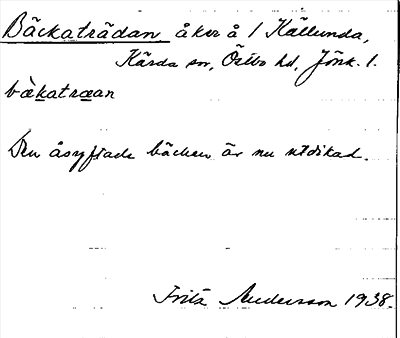 Bäckaträdan åker å 1 Källunda,
Kärda sn, Östbo hd, Jönk. l.
bèkatræan
Den åsyftade bäcken är nu utdikad.
Fritz Andersson 1938.